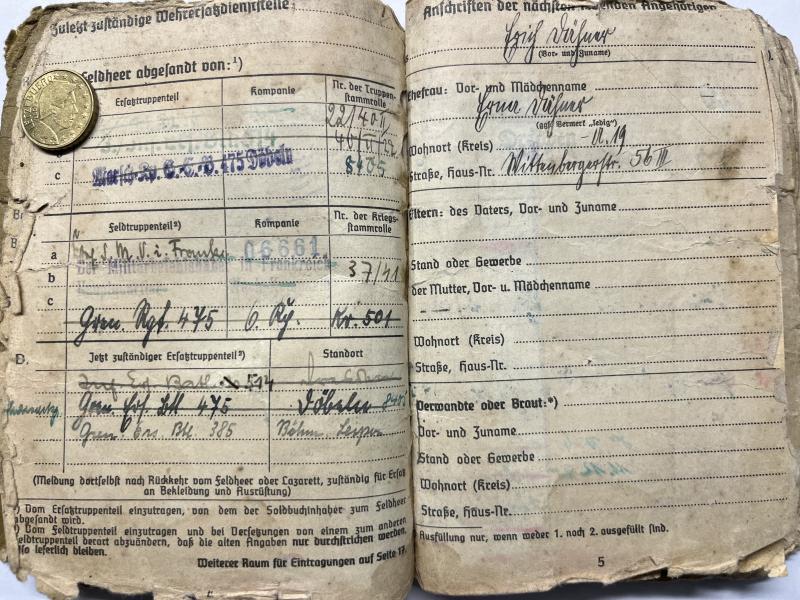 Zuletzt zuständige Wehrersatzdienststelle
Feldheer abgesandt von:¹)
Ersatztruppenteil
Kompanie
Nr. der Truppen-
stammrolle
22/40 II
c
475 Döbeln
8405
Feldtruppenteil²)
Kompanie
Nr. der Kriegs-
stammrolle
a
i. Frankr.
06661
b
in Frankreich
37/41
c
Gren. Rgt. 475
6. Kp.
Nr. 501
D.
Jetzt zuständiger Ersatztruppenteil²)
Standort
Inf. Ers. Batl. 514
Gren. Ers. Btl 475
Döbeln
Gren. Ers. Btl. 385
Böhm. Leipa
(Meldung dortselbst nach Rückkehr vom Feldheer oder Lazarett, zuständig für Ersatz
an Bekleidung und Ausrüstung)
¹) Vom Ersatztruppenteil einzutragen, von dem der Soldbuchinhaber zum Feldheer
abgesandt wird.
²) Vom Feldtruppenteil einzutragen und bei Versetzungen von einem zum anderen
Feldtruppenteil derart abzuändern, daß die alten Angaben nur durchstrichen werden,
also leserlich bleiben.
Weiterer Raum für Eintragungen auf Seite 17.
Anschriften der nächsten lebenden Angehörigen
Erich Dähner
(Vor- und Zuname)
Ehefrau: Vor- und Mädchenname
Erna Dähner
(ggf. Vermerk „ledig")
Wohnort (Kreis)
Straße, Haus-Nr. Wittenbergerstr. 56 III
Eltern: des Vaters, Vor- und Zuname
Stand oder Gewerbe
der Mutter, Vor- u. Mädchenname
Wohnort (Kreis)
Straße, Haus-Nr.
Verwandte oder Braut:*)
Vor- und Zuname
Stand oder Gewerbe
Wohnort (Kreis)
Straße, Haus-Nr.
Ausfüllung nur, wenn weder 1. noch 2. ausgefüllt sind.
5